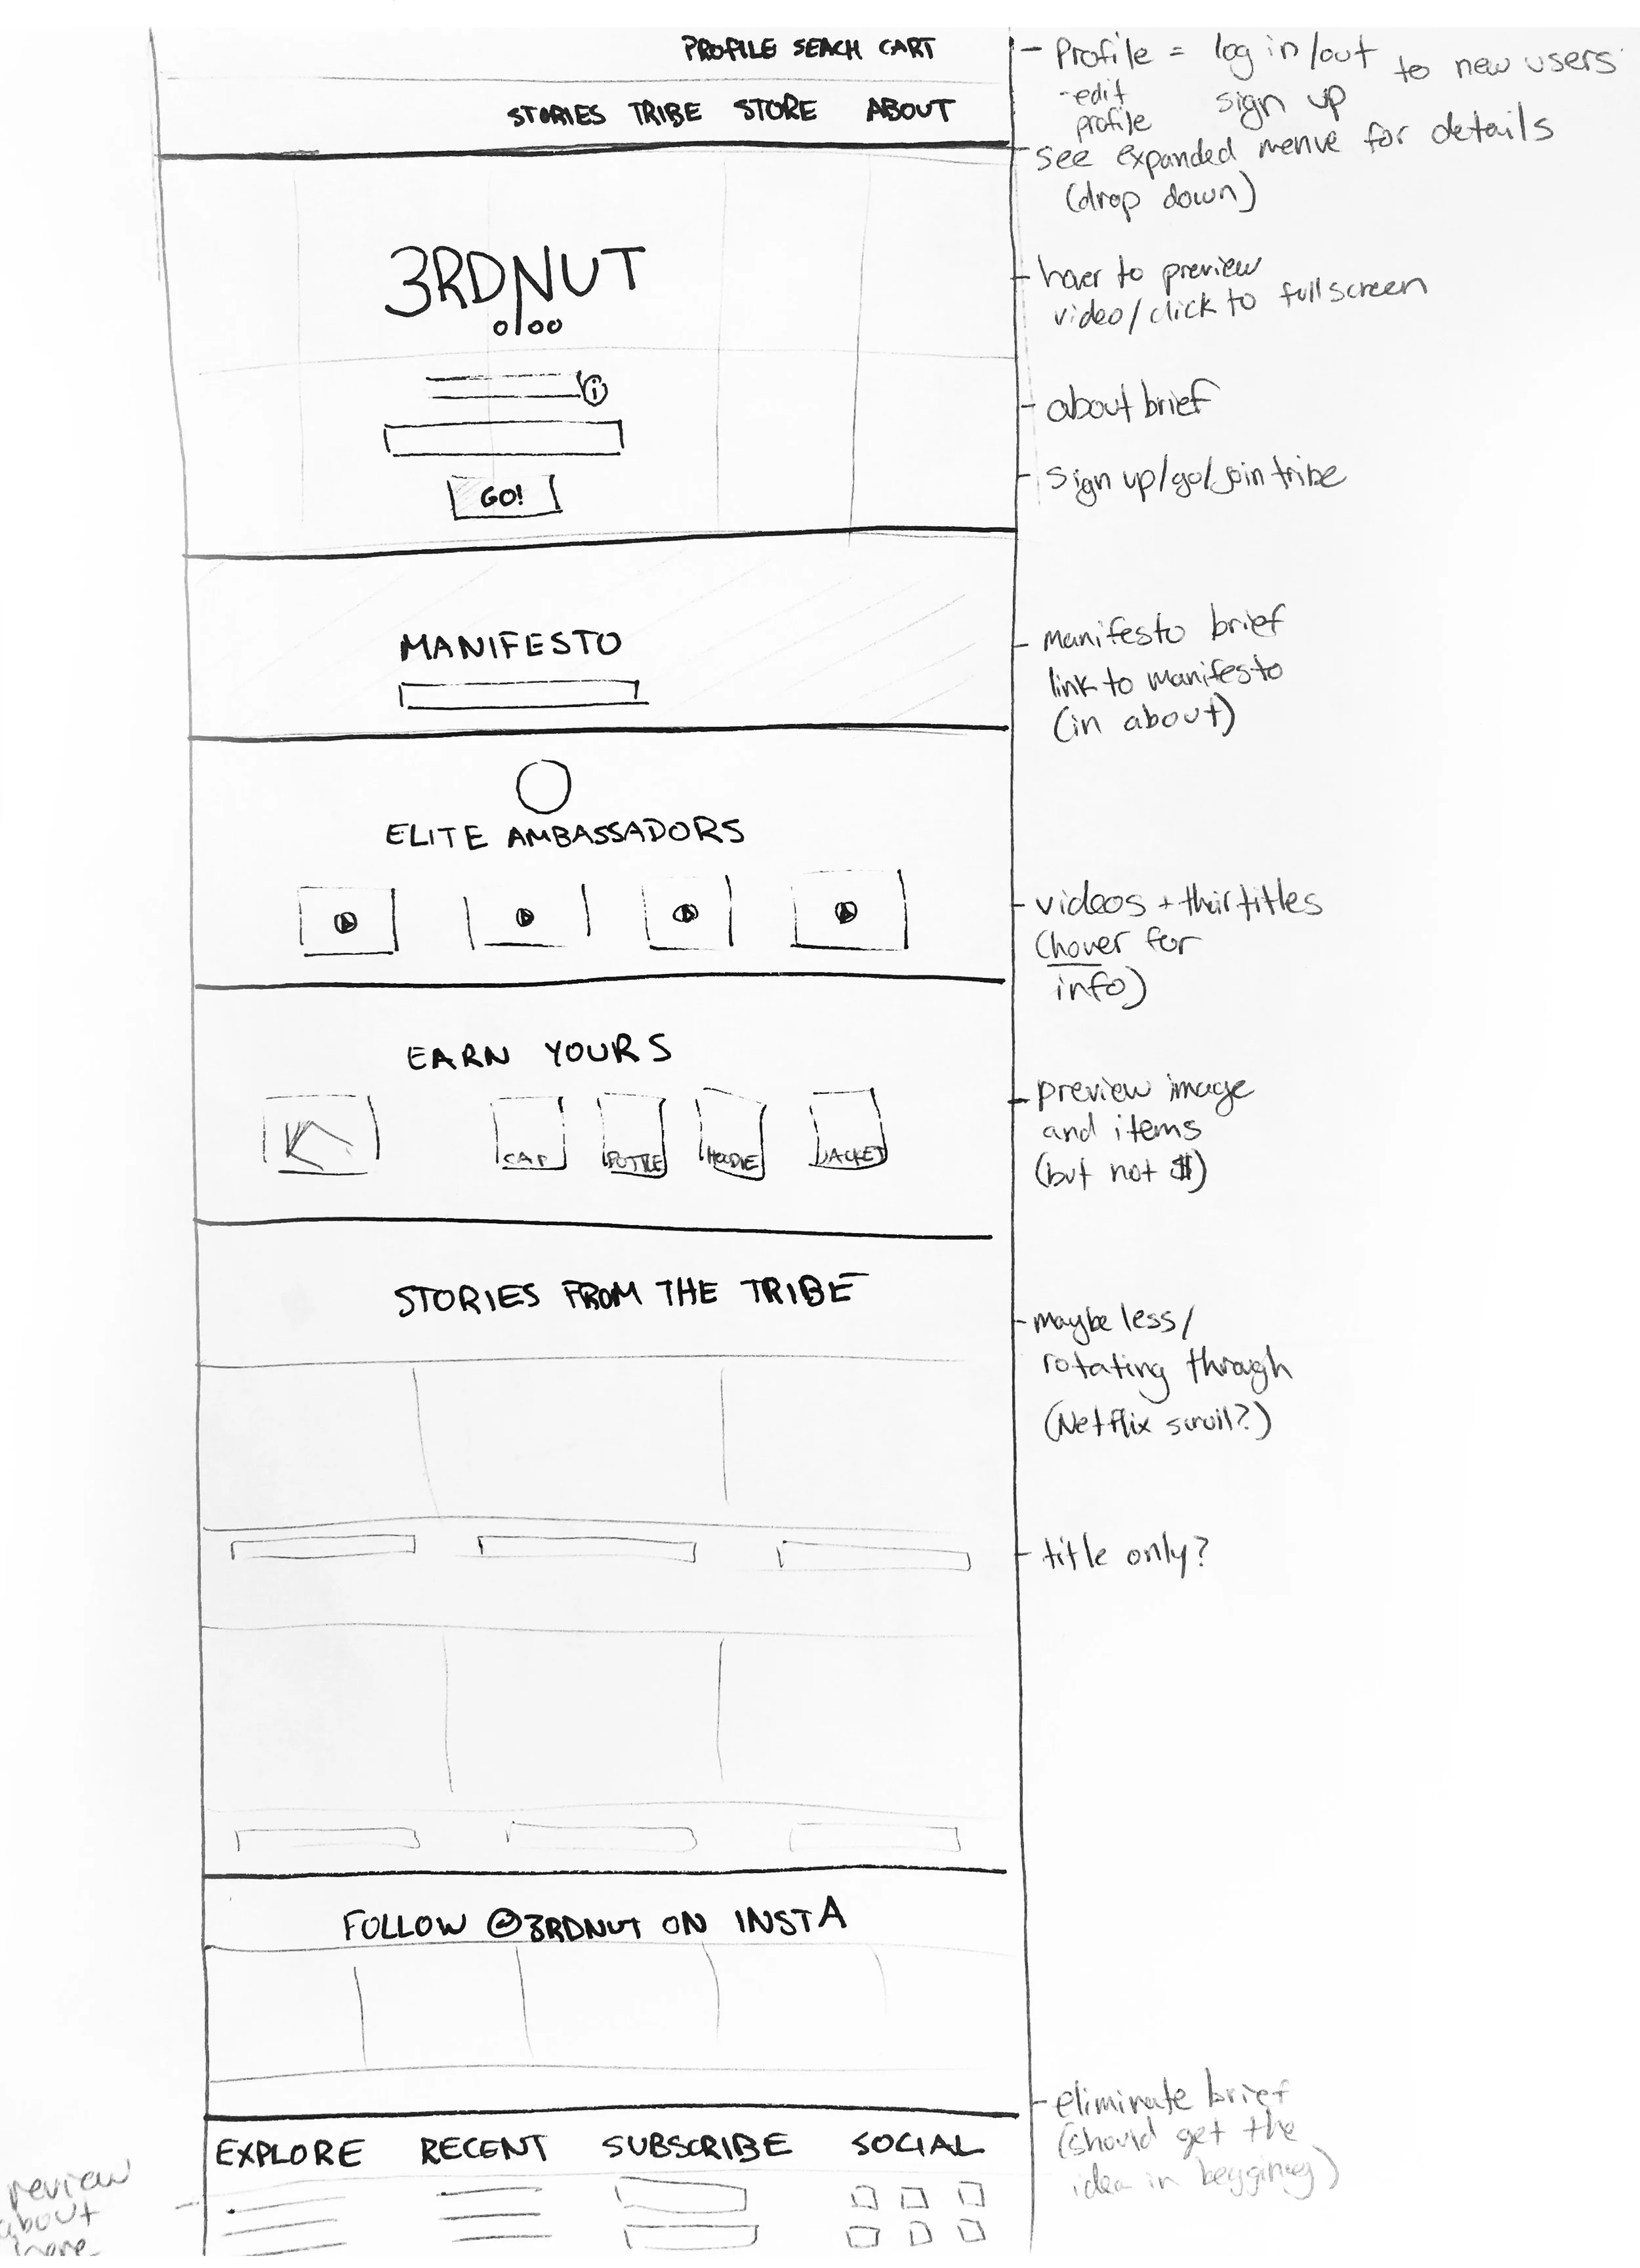 PROFILE SEACH CART
STORIES TRIBE STORE ABOUT
- Profile = log in/out to new users
-edit sign up
profile
see expanded menue for details
(drop down)
3RDNUT
- hover to preview
video/click to full screen
i
- about brief
- sign up/go/join tribe
GO!
MANIFESTO
- manifesto brief
link to manifesto
(in about)
ELITE AMBASSADORS
- videos + their titles
(hover for
info)
EARN YOURS
CAP BOTTLE HOODIE JACKET
- preview image
and items
(but not $)
STORIES FROM THE TRIBE
- maybe less/
rotating through
(Netflix scroll?)
- title only?
FOLLOW @3RDNUT ON INSTA
- eliminate brief
(should get the
idea in beggining)
EXPLORE RECENT SUBSCRIBE SOCIAL
review
about
here